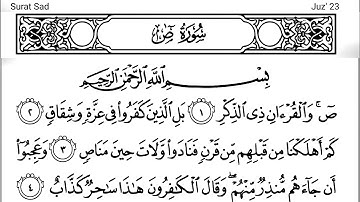 Surat Sad Juz' 23
سُورَةُ صٓ
بِسْمِ ٱللَّهِ ٱلرَّحْمَٰنِ ٱلرَّحِيمِ
صٓ ۚ وَٱلْقُرْءَانِ ذِى ٱلذِّكْرِ ١ بَلِ ٱلَّذِينَ كَفَرُوا۟ فِى عِزَّةٍ وَشِقَاقٍ ٢
كَمْ أَهْلَكْنَا مِن قَبْلِهِم مِّن قَرْنٍ فَنَادَوا۟ وَّلَاتَ حِينَ مَنَاصٍ ٣ وَعَجِبُوٓا۟
أَن جَآءَهُم مُّنذِرٌ مِّنْهُمْ ۖ وَقَالَ ٱلْكَٰفِرُونَ هَٰذَا سَٰحِرٌ كَذَّابٌ ٤